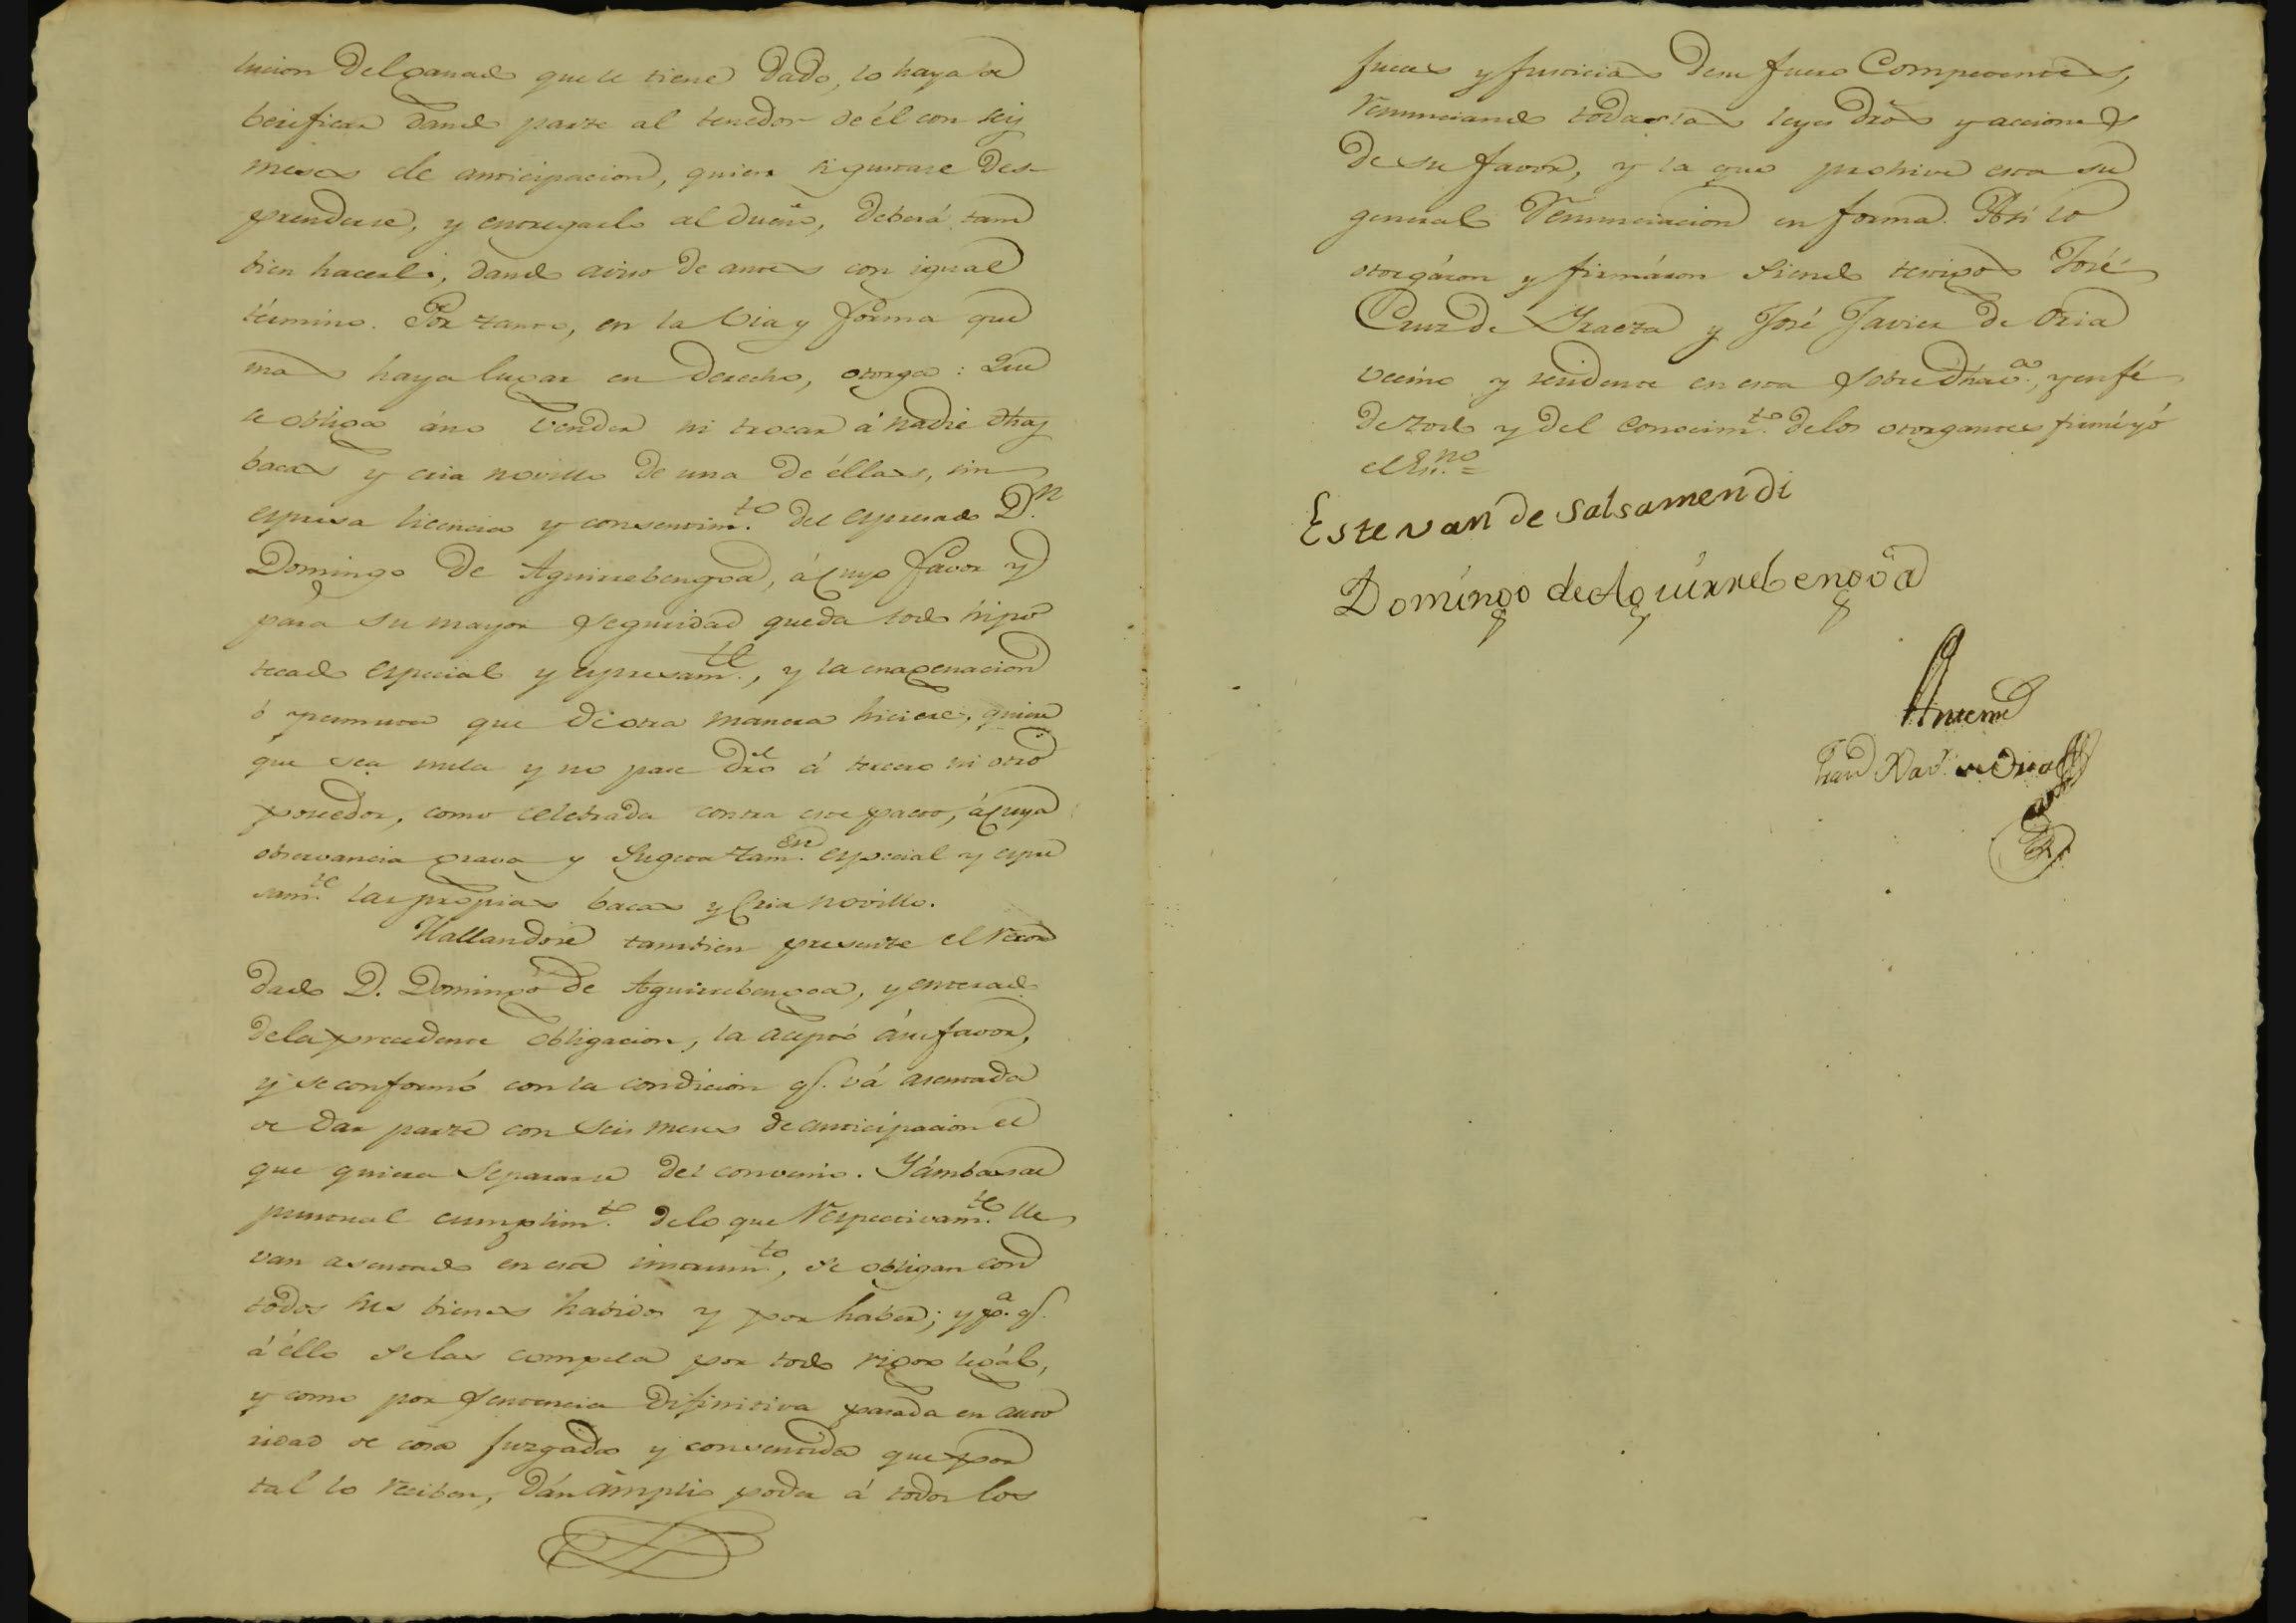 lucion del ganado que le tiene dado, lo haya de
berificar dando parte al tenedor de él con seis
meses de anticipacion, quien si gustase des-
prenderse, y entregarlo al dueño, deberá tam
bien hacerlo, dando aviso de antes con igual
término. Por tanto, en la via y forma que
mas haya lugar en derecho, otorga: Que
se obliga áno vender ni trocar á nadie dhas
bacas y cria novillo de una de éllas, sin
espresa licencia y consentim.to del espresado D.n
Domingo de Aguirrebengoa, á cuyo favor y
para su mayor seguridad queda todo hipo
tecado especial y espresam.te, y la enagenacion
ó permuta que de otra manera hiciere, quiere
que sea nula y no pase dro á tercero ni otro
poseedor, como celebrada contra este pacto, á cuya
observancia grava y sugeta tam.en especial y espre
sam.te las propias bacas y cria novillo.
Hallandose tambien presente el recor
dado D. Domingo de Aguirrebengoa, y enterado
dela precedente obligacion, la aceptó ásu favor,
y se conformó con la condicion q. vá asentada
de dar parte con seis meses de anticipacion el
que quiera separarse del convenio. Y ámbas al
personal cumplim.to delo que respectivam.te lle
van asentado en este instrum.to, se obligan con
todos sus bienes habidos y por haber; y p.a q.
á éllo selas compela por todo rigor legál,
y como por sentencia difinitiva pasada en auto
ridad de cosa juzgada y consentida que por
tal lo reciben, dán ámplio poder á todos los
jueces y justicias desu fuero Competentes,
renunciando todas las leyes dros y acciones
de su favor, y la que prohive esta su
general renunciacion en forma. Así lo
otorgáron y firmáron siendo testigos José
Cruz de Yraeta y José Javier de Oria
vecino y residente en esta sobre dha v.a, y en fé
de todo y del conocim.to delos otorgantes firmé yó
el Es.no =
Estevan de Salsamendi
Domíngo de Aguírrebengoa
Antemi
Juan Xav.r de Oria